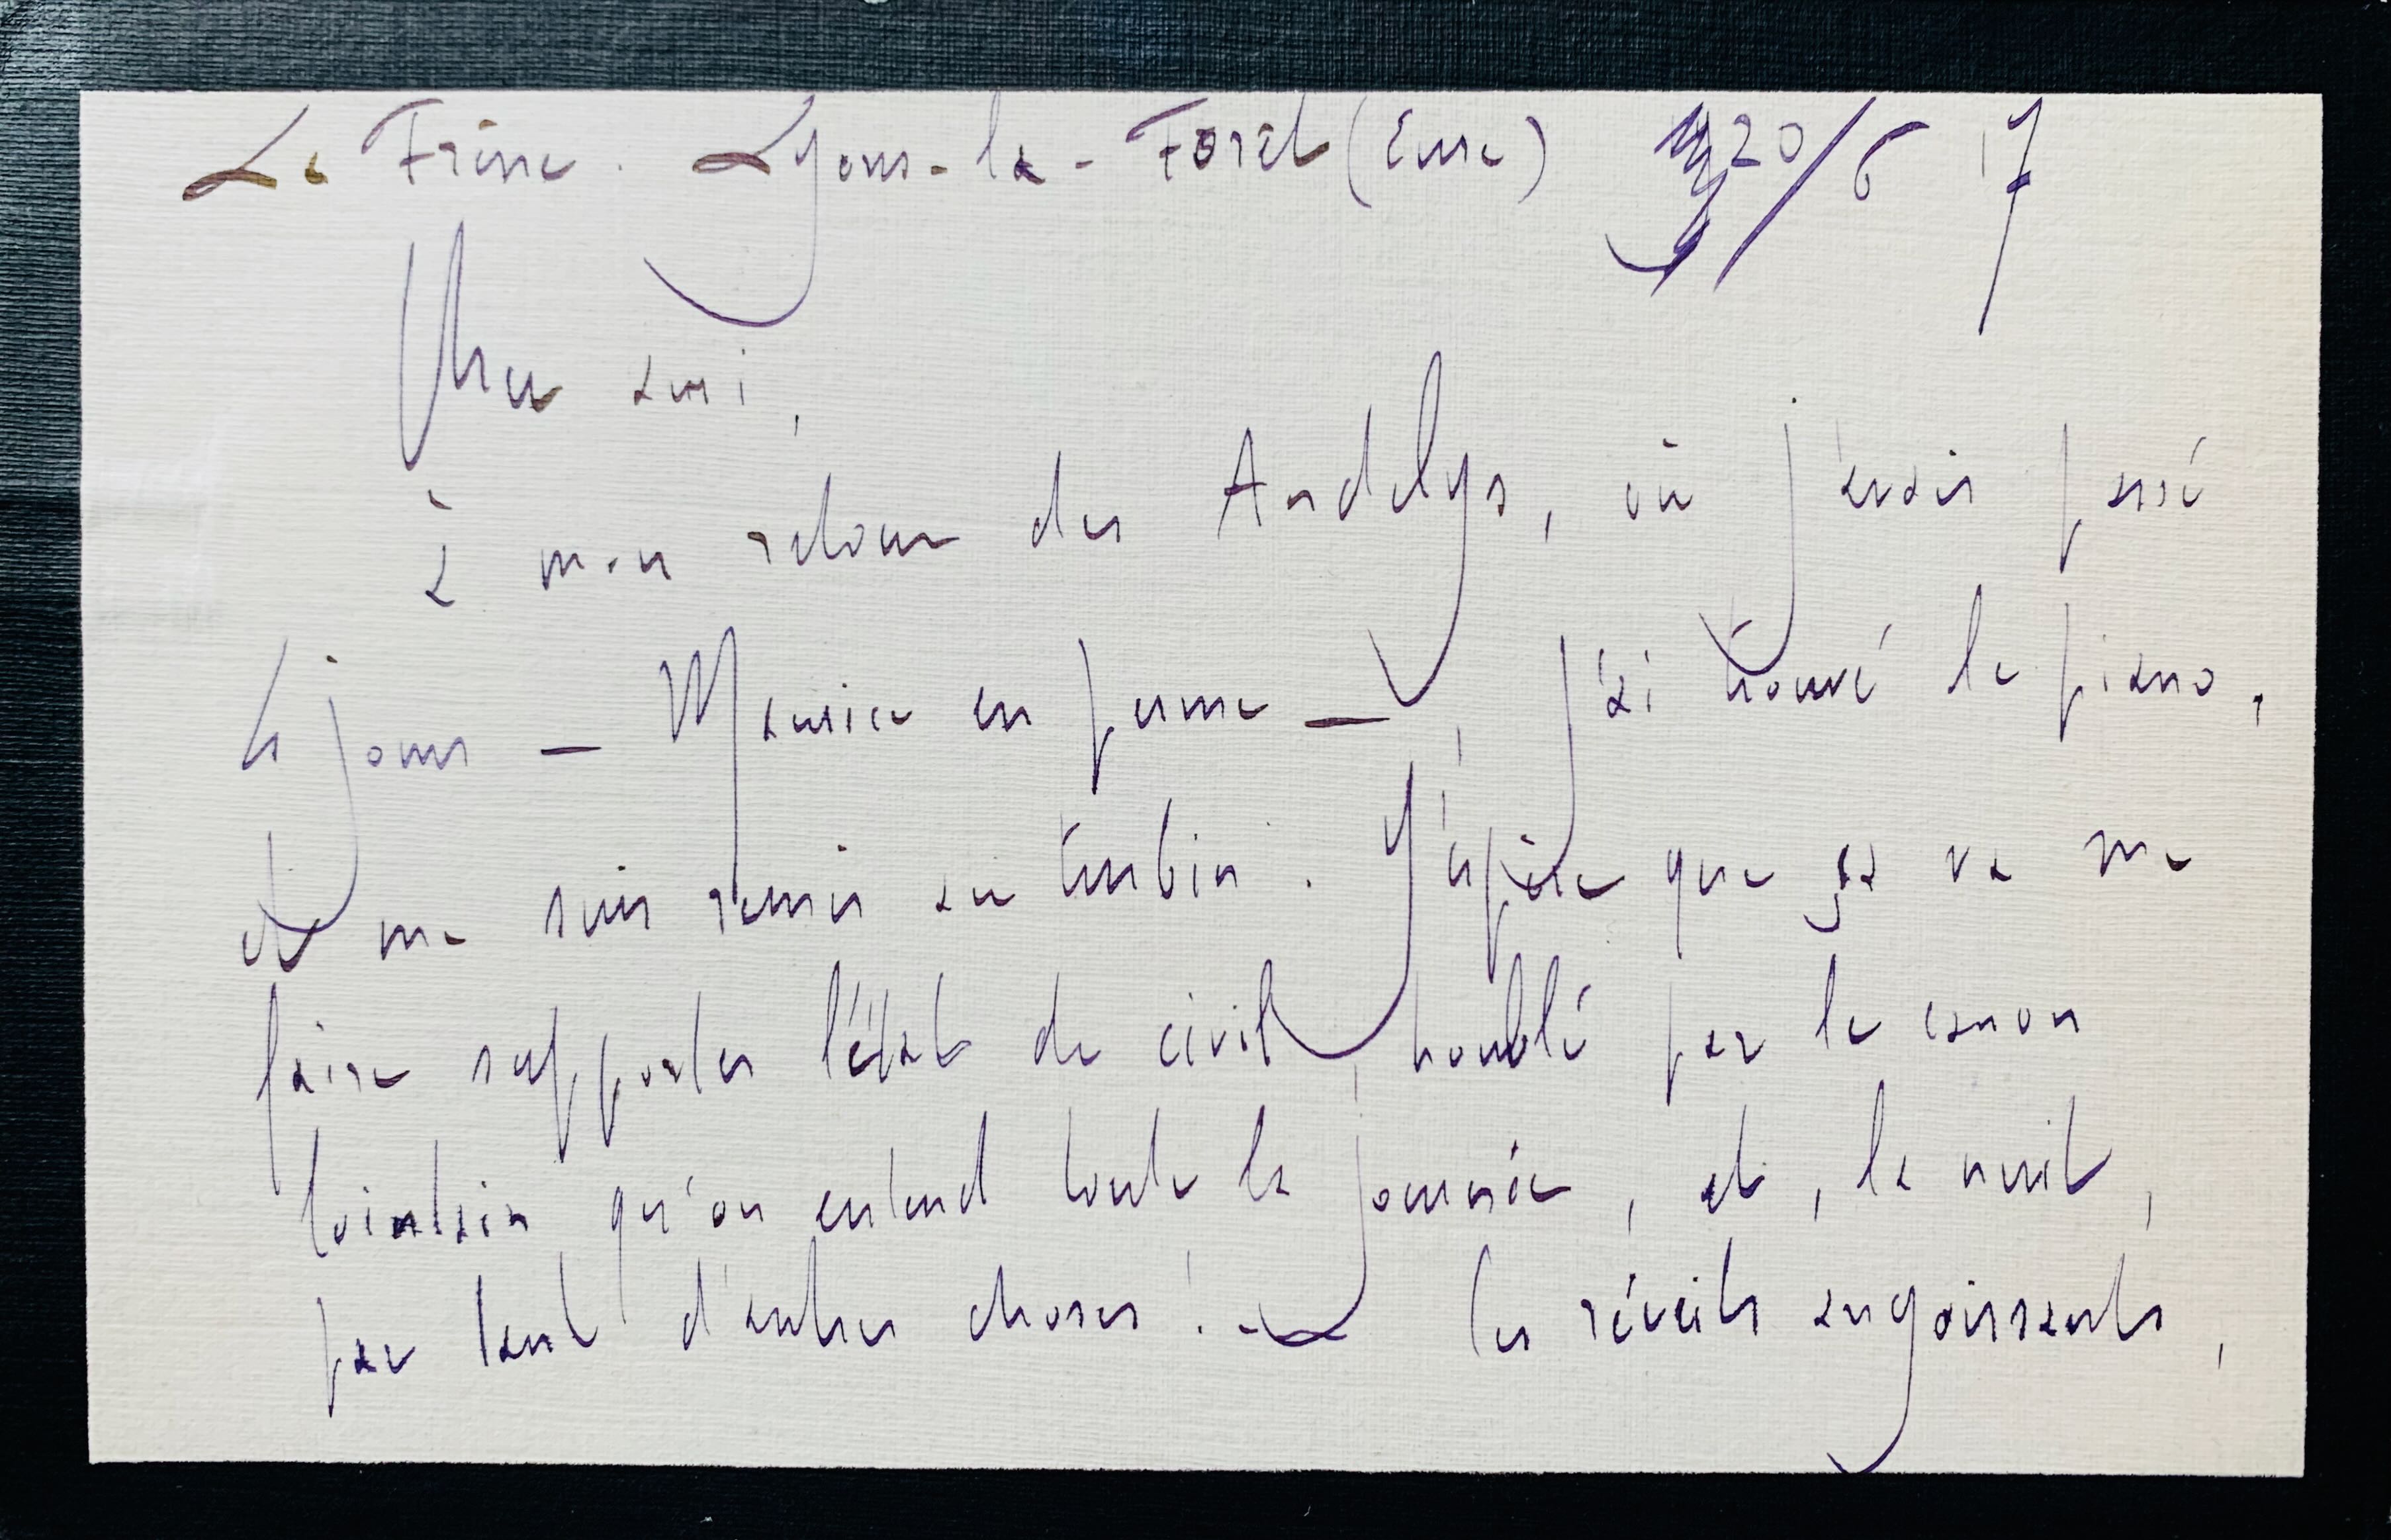 Le Frêne. Lyons-la-Forêt (Eure) 20/6 17
Mon ami,
à mon retour des Andelys, où j'avais passé
4 jours — Maurice en perme —, j'ai trouvé le piano,
et me suis remis au turbin. J'espère que ça va me
faire supporter l'état de civil troublé par le canon
lointain qu'on entend toute la journée, et, la nuit,
par tant d'autres choses! — les réveils angoissants,